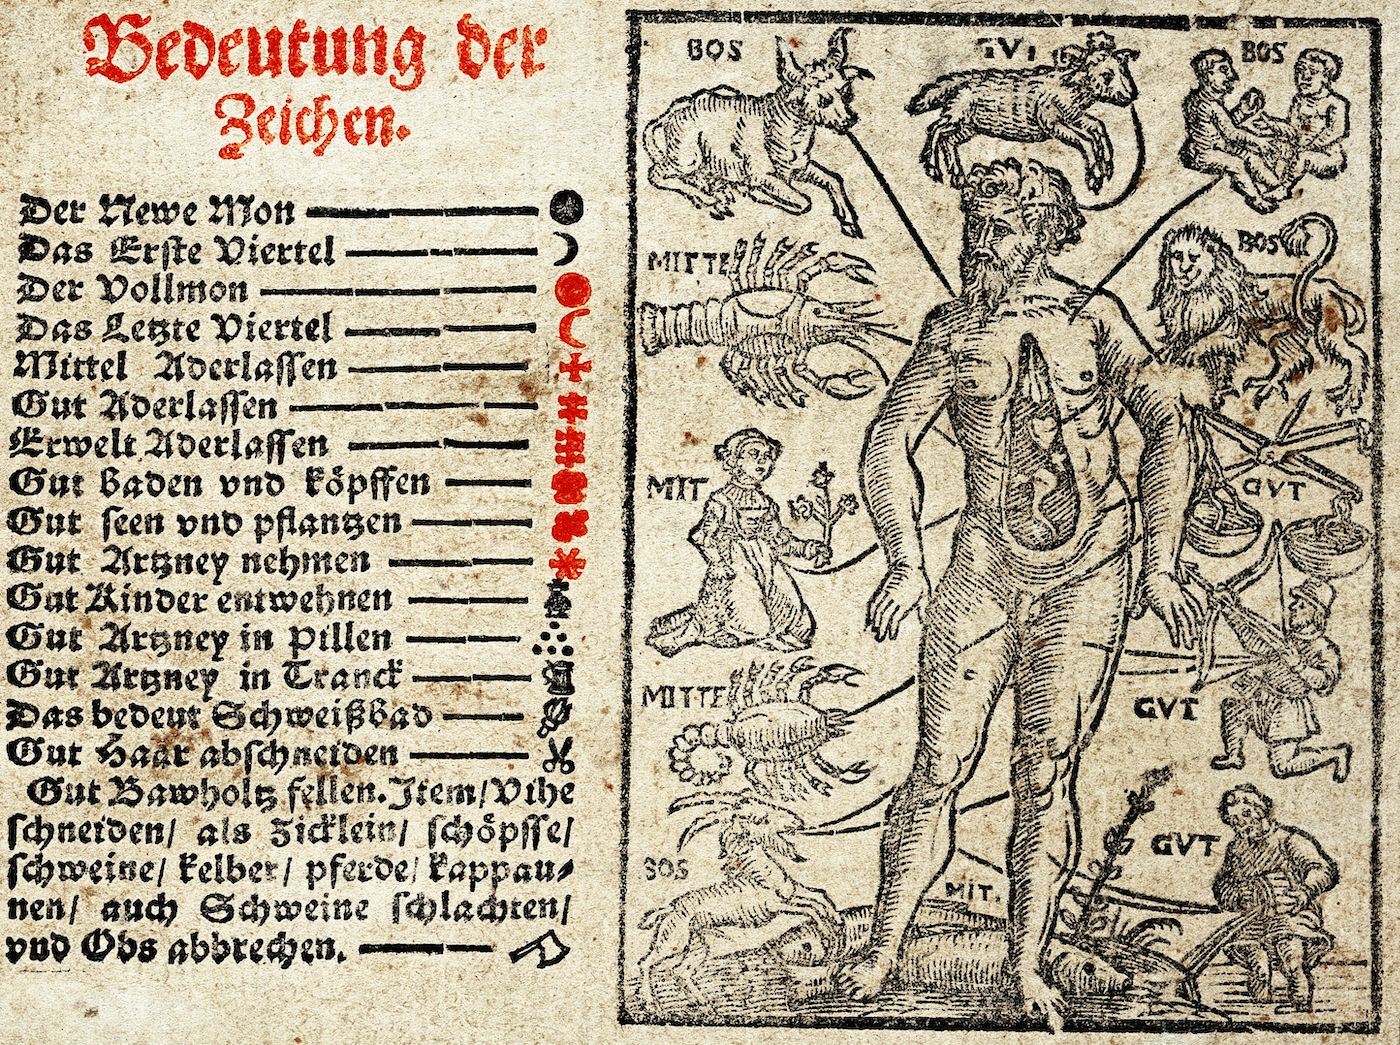 Bedeutung der
Zeichen.
Der Newe Mon
Das Erste Viertel
Der Vollmon
Das Letzte Viertel
Mittel Aderlassen
Gut Aderlassen
Erwelt Aderlassen
Gut Baden vnd köpffen
Gut seen vnd pflantzen
Gut Artzney nehmen
Gut Kinder entwehnen
Gut Artzney in Pillen
Gut Artzney in Tranck
Das bedeut Schweißbad
Gut Haar abschneiden
Gut Bawholtz fellen. Item/ Vihe
schneiden/ als Zicklein/ schöpffe/
schweine/ kelber/ pferde/ kappau-
nen/ auch Schweine schlachten/
vnd Obs abbrechen.
BOS
GVT
BOS
MITTE
BOS
MIT
GVT
MITTE
GVT
BOS
MIT.
GVT